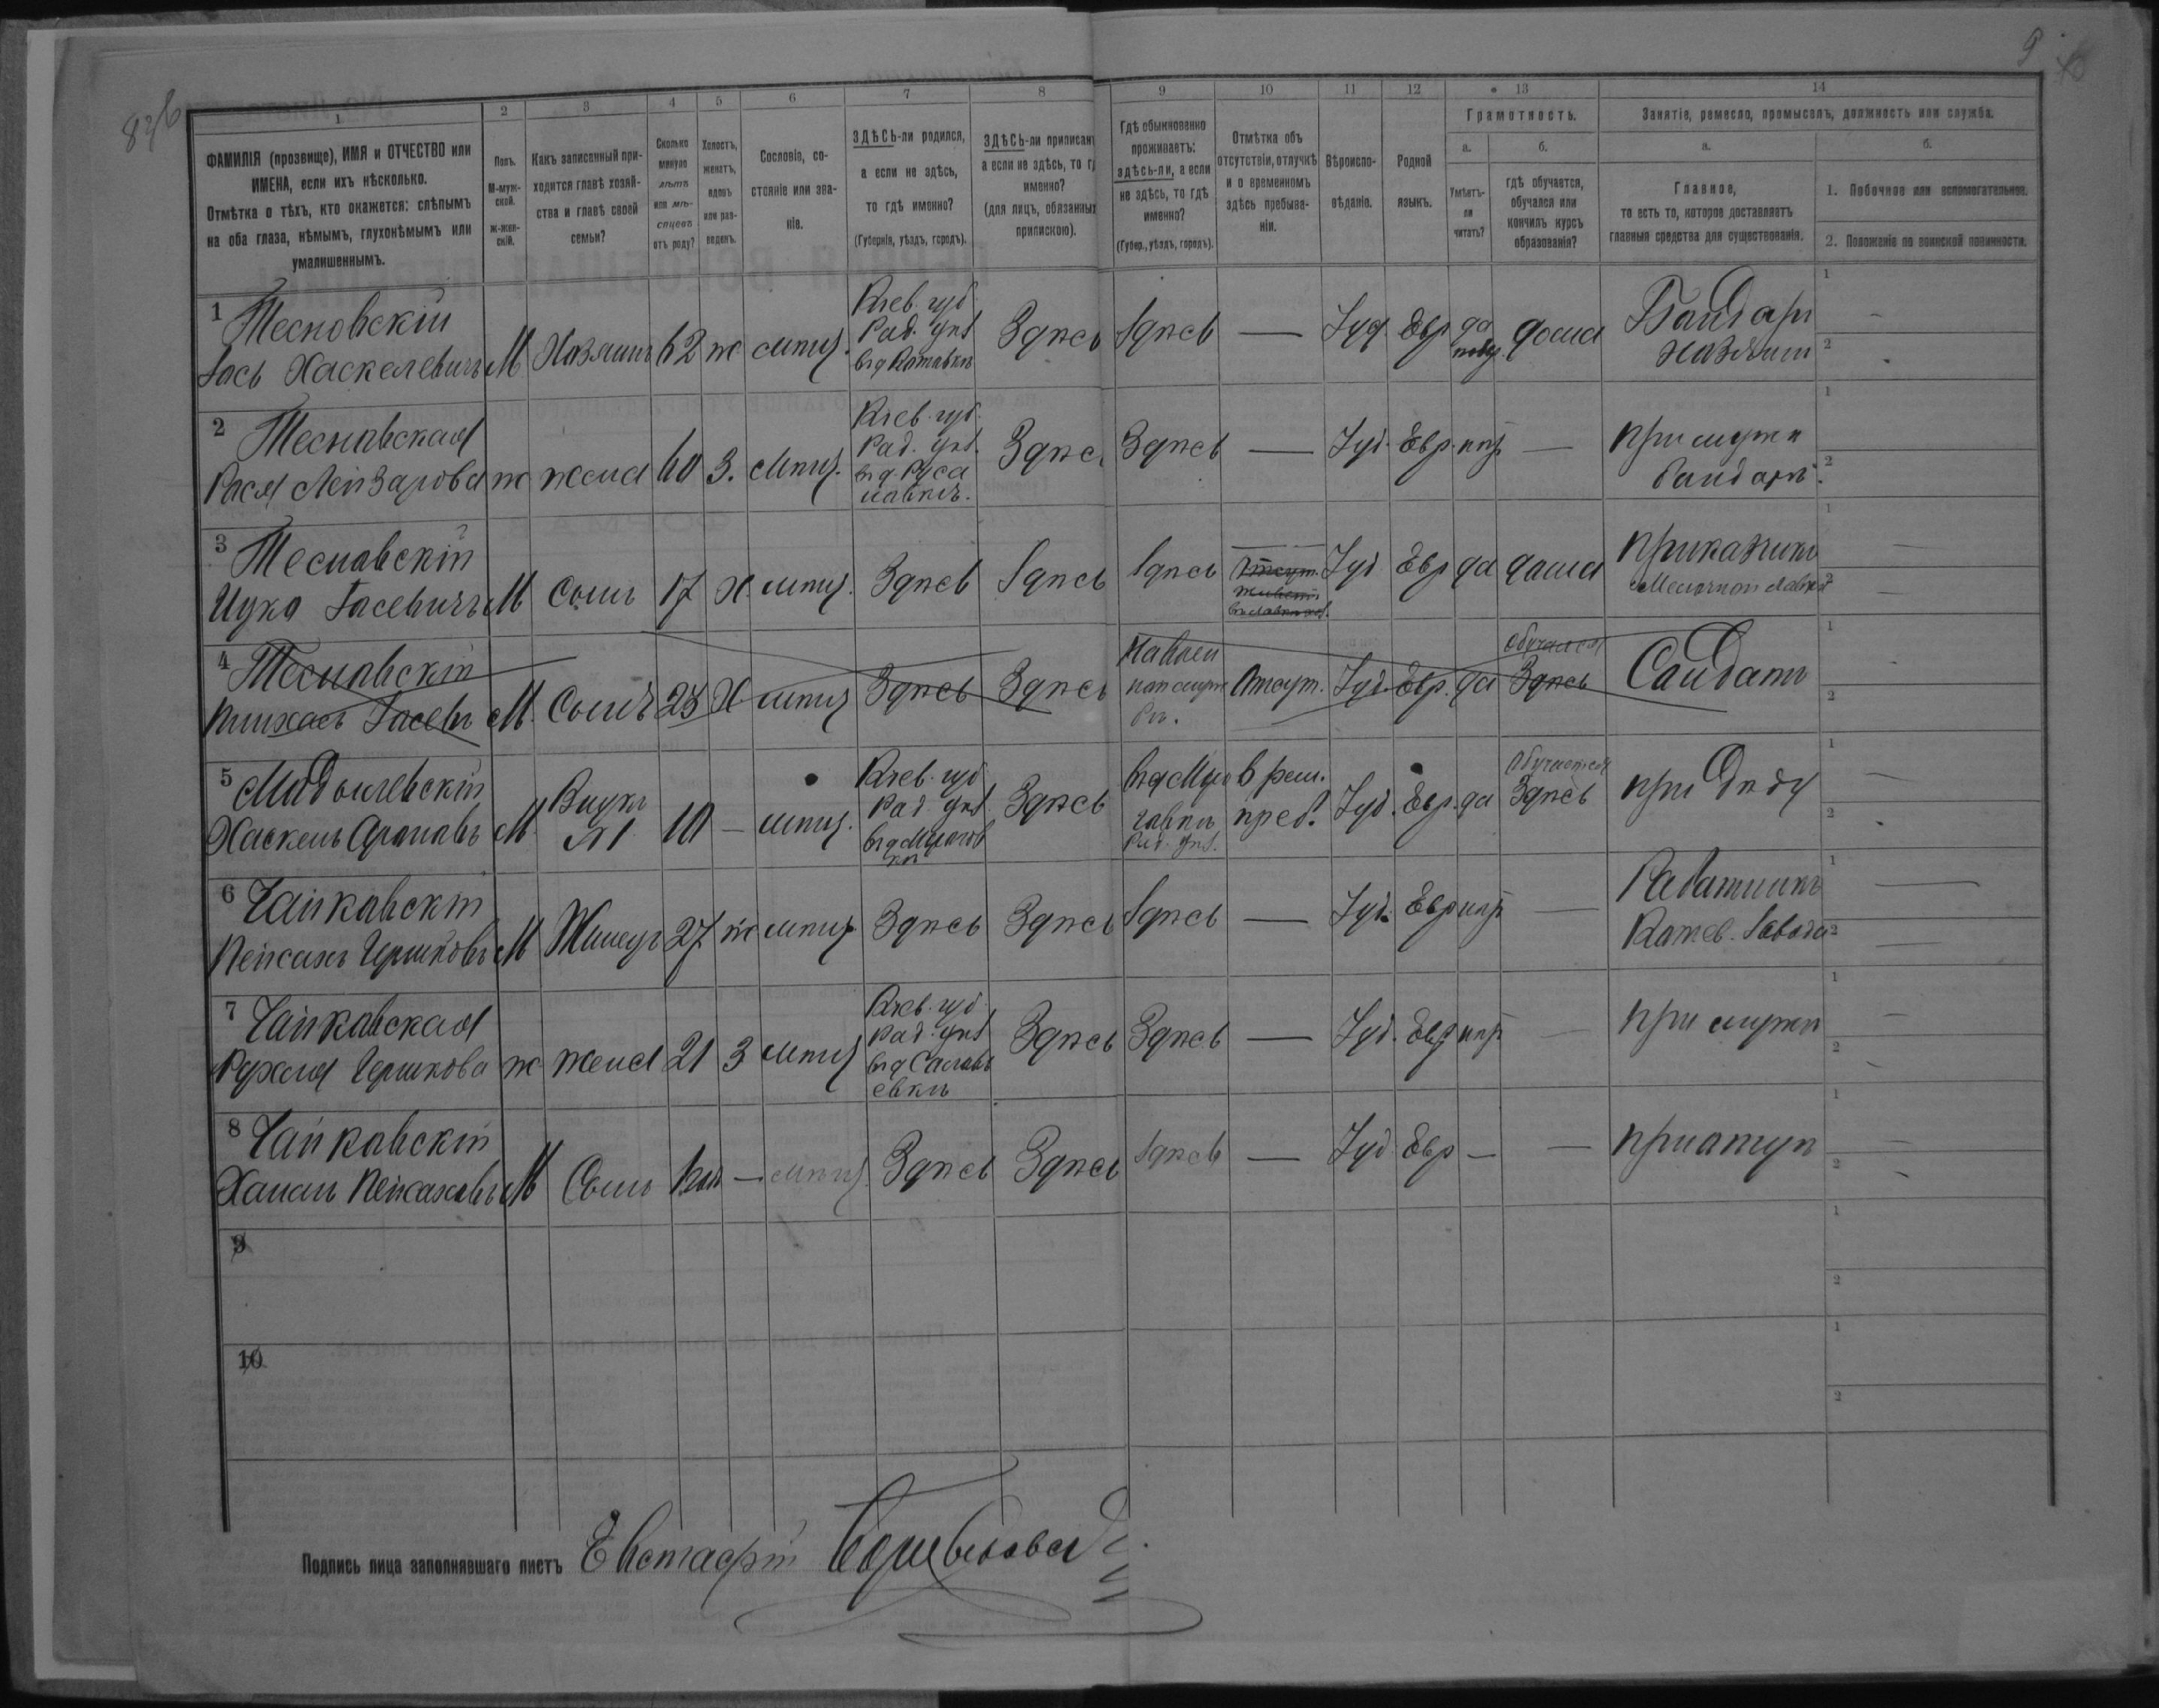 826
9
1 2 3 4 5 6 7 8 9 10 11 12 13 14
ФАМИЛІЯ (прозвище), ИМЯ и ОТЧЕСТВО или
ИМЕНА, если ихъ нѣсколько.
Отмѣтка о тѣхъ, кто окажется: слѣпымъ
на оба глаза, нѣмымъ, глухонѣмымъ или
умалишеннымъ.
Полъ.
М-муж-
ской.
Ж-жен-
скій.
Какъ записанный при-
ходится главѣ хозяй-
ства и главѣ своей
семьи?
Сколько
минуло
лѣтъ
или мѣ-
сяцевъ
отъ роду?
Холостъ,
женатъ,
вдовъ
или раз-
веденъ.
Сословіе, со-
стояніе или зва-
ніе.
ЗДѢСЬ-ли родился,
а если не здѣсь,
то гдѣ именно?
(Губернія, уѣздъ, городъ).
ЗДѢСЬ-ли приписанъ
а если не здѣсь, то гд
именно?
(для лицъ, обязанных
припискою).
Гдѣ обыкновенно
проживаетъ:
здѣсь-ли, а если
не здѣсь, то гдѣ
именно?
(Губер., уѣздъ, городъ).
Отмѣтка объ
отсутствіи, отлучкѣ
и о временномъ
здѣсь пребыва-
ніи.
Вѣроиспо-
вѣданіе.
Родной
языкъ.
Грамотность.
а.
Умѣетъ-
ли
читать?
б.
гдѣ обучается,
обучался или
кончилъ курсъ
образованія?
Занятіе, ремесло, промыселъ, должность или служба.
а.
Главное,
то есть то, которое доставляетъ
главныя средства для существованія.
б.
1. Побочное или вспомогательное.
2. Положеніе по воинской повинности.
1 Тесновскій
Іось Хаскелевичъ
М Хозяинъ 62 ж мѣщ.
Кіев. губ
Рад. уѣз
Здѣсь Здѣсь — Іуд Евр да дома
Бандарь
хозяинъ
2 Теснавская
Рася Лейзарова
ж жена 60 З. мѣщ.
Кіев. губ.
Рад. уѣз.
Здѣсь Здѣсь — Іуд. Евр. нѣт —
при мужѣ
бандарѣ.
3 Теснавскій
Ицко Іосевичъ
М Сынъ 17 Х мѣщ. Здѣсь Здѣсь Здѣсь
Отсут.
Іуд Евр да дома
приказчикъ
Мелочной лавки
4 Теснавскій
Пинхасъ Іосевъ
М. Сынъ 23 Х мѣщ Здѣсь Здѣсь
Отсут. Іуд. Евр. да
Обучался
Здѣсь
Салдатъ
5
Хаскель
М.
Внукъ
10 — мѣщ.
Кіев. губ
Рад уѣз
Здѣсь
Рад. уѣз.
врем.
преб.
Іуд. Евр. да
Обучается
Здѣсь
при Дѣду
6 Чайкавскій
Пейсахъ Гершковъ
М Жилец 27 ж мѣщ Здѣсь Здѣсь Здѣсь — Іуд. Евр нѣт —
Работникъ
Кожев. Завода
7 Чайкавская
Рухля Гершкова
ж жена 21 З мѣщ
Кіев. губ
Рад. уѣз
Здѣсь Здѣсь — Іуд. Евр нѣт —
при мужѣ
8 Чайкавскій
Хаимъ Пейсаховъ
М Сынъ — мѣщ Здѣсь Здѣсь Здѣсь — Іуд Евр — —
при отцѣ
9
10
Подпись лица заполнявшаго листъ Евстафій